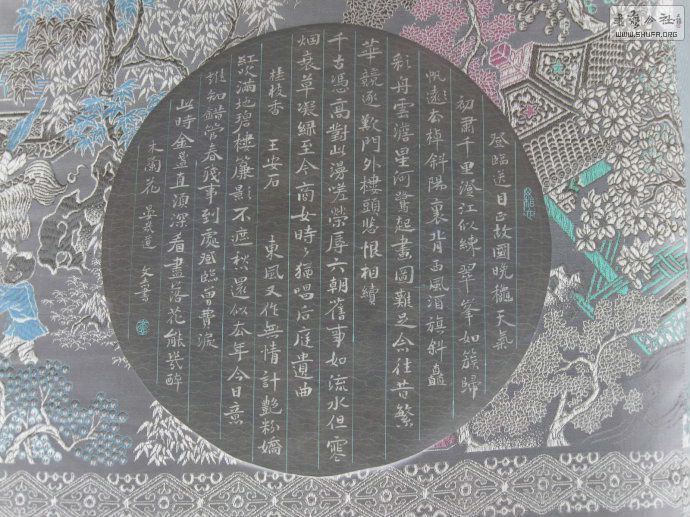 登臨送目正故國晚穐天氣
初肅千里澄江似練翠峯如簇歸
帆遠去棹斜陽裏背西風酒旗斜矗
彩舟雲澹星河鷺起畫圖難足念往昔繁
華競逐歎門外樓頭悲恨相續
千古憑高對此漫嗟榮辱六朝舊事如流水但寒
烟衰草凝緑至今商女時〻猶唱后庭遺曲
桂枝香 王安石 東風又作無情計艷粉嬌
紅吹滿地碧樓簾影不遮愁還似去年今日意
誰知錯管春殘事到處登臨曾費淚
此時金盞直須深看盡落花能幾醉
木蘭花 晏幾道 文 書
WWW.SHUFA.ORG